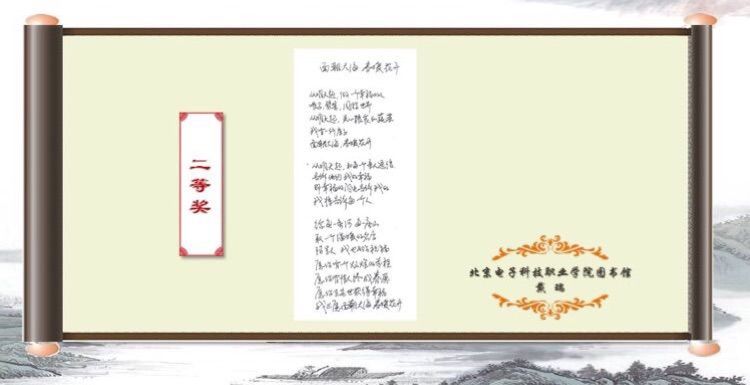 面朝大海 春暖花开
从明天起,做一个幸福的人
喂马,劈柴,周游世界
从明天起,关心粮食和蔬菜
我有一所房子
面朝大海,春暖花开
从明天起,和每个亲人通信
告诉他们我的幸福
那幸福的闪电告诉我的
我将告诉每个人
给每一条河每一座山
取一个温暖的名字
陌生人 我也为你祝福
愿你有个灿烂的前程
愿你有情人终成眷属
愿你在尘世获得幸福
我只愿面朝大海,春暖花开
二等奖
北京电子科技职业学院图书馆
戴 瑞